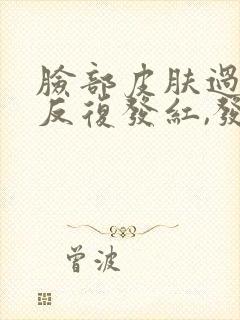 臉部皮肤過
反復發紅,發
曾波